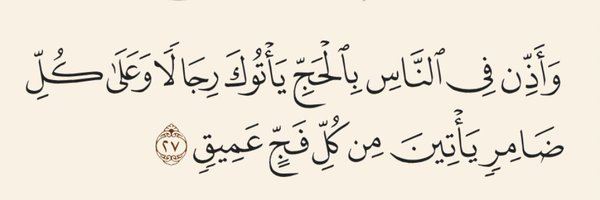 وَأَذِّن فِي ٱلنَّاسِ بِٱلْحَجِّ يَأْتُوكَ رِجَالًا وَعَلَىٰ كُلِّ
ضَامِرٍ يَأْتِينَ مِن كُلِّ فَجٍّ عَمِيقٍ ٢٧